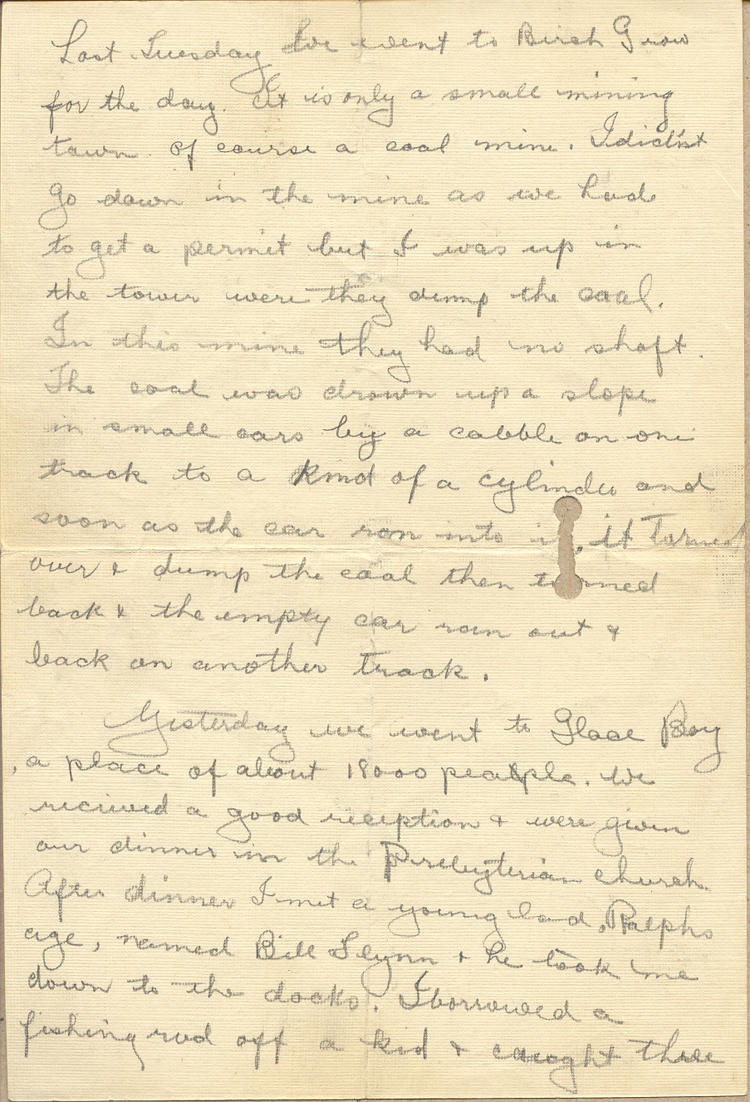 Last Tuesday we went to Birch Grow
for the day. It is only a small mining
town of course a coal mine. I didn't
go down in the mine as we had
to get a permit but I was up in
the tower were they dump the coal.
In this mine they had no shaft.
The coal was drawn up a slope
in small cars by a cabble on one
track to a kind of a cylinder and
soon as the car ran into it, it turned
over & dump the coal then turned
back & the empty car ran out &
back on another track.
Yesterday we went to Glace Bay
, a place of about 18000 people. We
recieved a good reception & were given
our dinner in the Presbyterian church.
After dinner I met a young lad, Ralphs
age, named Bill Flynn & he took me
down to the docks. I borrowed a
fishing rod off a kid & caught three